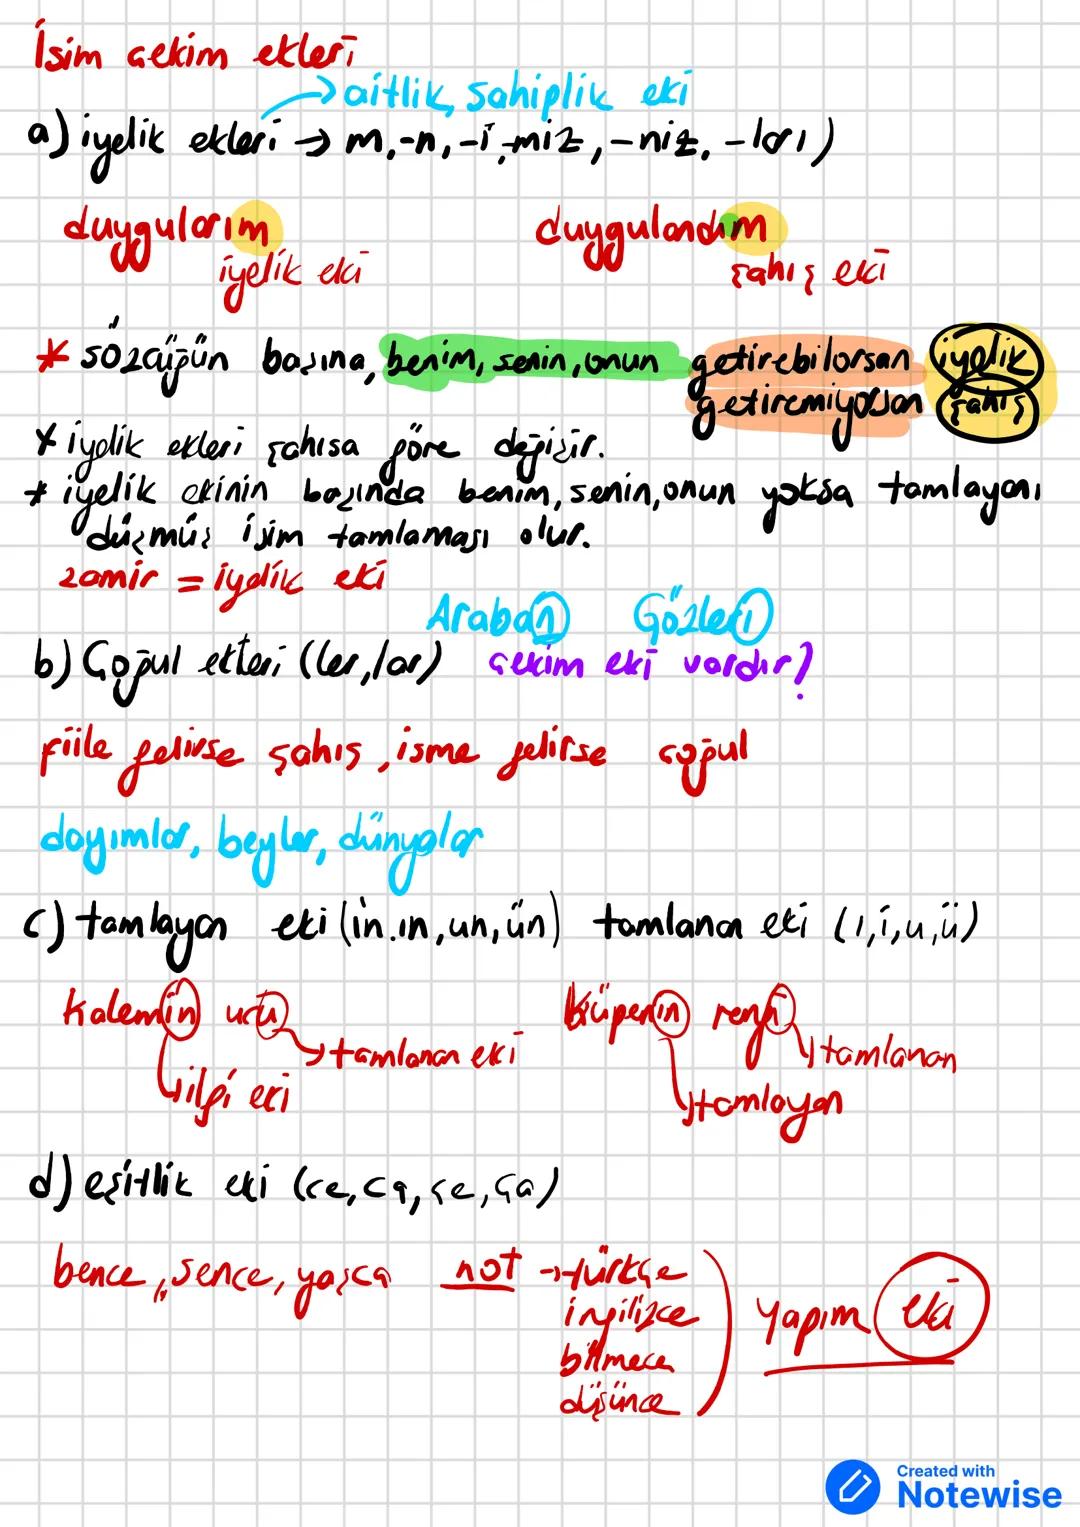 İsim çekim ekleri
→ aitlik, sahiplik eki
a) iyelik ekleri → m,-n,-i,-miz,-niz,-ları)
duygularım duygulandım
iyelik eki şahıs eki
* sözcüğün başına, benim, senin, onun getirebilorsan iyelik
getiremiyorsan şahıs
* iyelik ekleri şahısa göre değişir.
* iyelik ekinin başında benim, senin, onun yoksa tamlayanı
düşmüş isim tamlaması olur.
zamir = iyelik eki
Araban Gözleri
b) Çoğul ekleri (ler,lar) çekim eki vardır?
fiile gelirse şahıs, isme gelirse çoğul
dayımlar, beyler, dünyalar
c) tamlayan eki (in.ın,un,ün) tamlanan eki (ı,i,u,ü)
Kalemin ucu Küpenin rengi
→ tamlanan eki tamlanan
ilgi eki tamlayan
d) eşitlik eki (ce,ca,çe,ça)
bence, sence, yaşca not → türkçe
ingilizce
bilmece
düşünce
yapım eki
Created with
Notewise